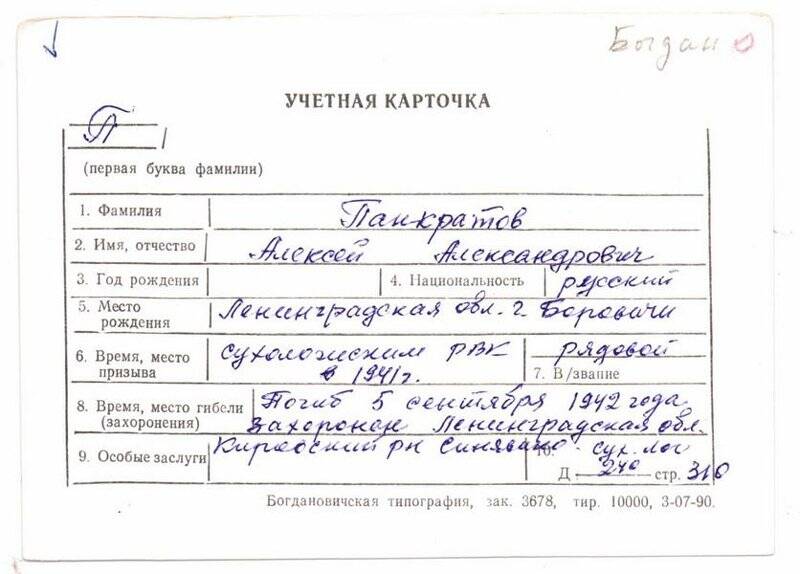 Богдан
УЧЕТНАЯ КАРТОЧКА
П
(первая буква фамилии)
1. Фамилия Панкратов
2. Имя, отчество Алексей Александрович
3. Год рождения 4. Национальность русский
5. Место рождения Ленинградская обл. г. Боровичи
6. Время, место призыва Сухоложским РВК в 1941г.
рядовой
7. В/звание
8. Время, место гибели (захоронения) Погиб 5 сентября 1942 года
Захоронен Ленинградская обл.
Кировский рн Синявино
9. Особые заслуги
10. Сух. лог
Д 240 стр. 310
Богдановичская типография, зак. 3678, тир. 10000, 3-07-90.